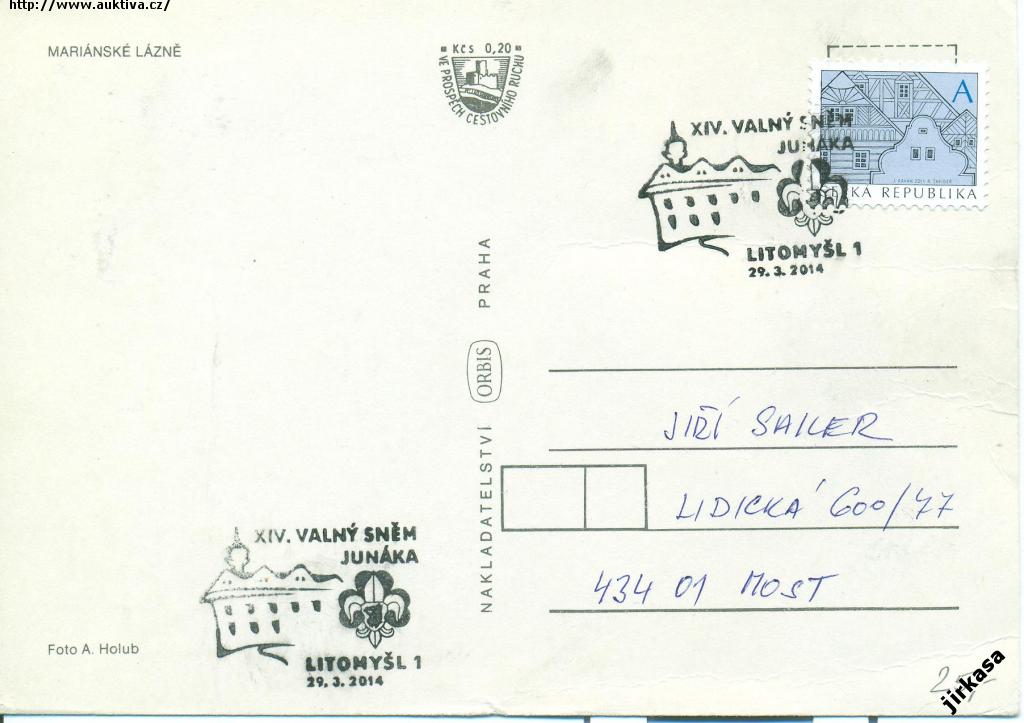 http://www.auktiva.cz/
MARIÁNSKÉ LÁZNĚ
Kčs 0,20
VE PROSPĚCH CESTOVNÍHO RUCHU
A
ČESKÁ REPUBLIKA
XIV. VALNÝ SNĚM
JUNÁKA
LITOMYŠL 1
29.3.2014
NAKLADATELSTVÍ ORBIS PRAHA
JIŘÍ SAILER
LIDICKÁ 600/47
434 01 MOST
XIV. VALNÝ SNĚM
JUNÁKA
LITOMYŠL 1
29.3.2014
Foto A. Holub
jirkasa